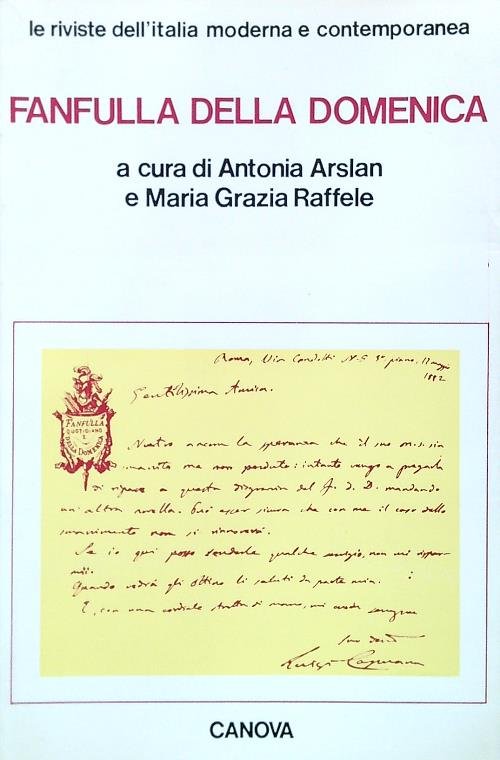 le riviste dell'italia moderna e contemporanea
FANFULLA DELLA DOMENICA
a cura di Antonia Arslan
e Maria Grazia Raffele
Roma, Via Condotti N. 5 3° piano, 11 maggio
1882
Gentilissima Amica.
FANFULLA
QUOTIDIANO
DELLA DOMENICA
Nutro ancora la speranza che il suo ms. sia
smarrito ma non perduto: intanto vengo a pregarla
di riparare a questa disgrazia del F. d. D. mandando
un'altra novella. Può esser sicura che con me il caso dello
smarrimento non si rinnoverà.
Se io qui posso renderle qualche servigio, non mi rispar-
mii.
Quando vedrà gli Ottino li saluti da parte mia.
E, con una cordiale stretta di mano, mi creda sempre
suo dev.
Luigi Capuana
CANOVA